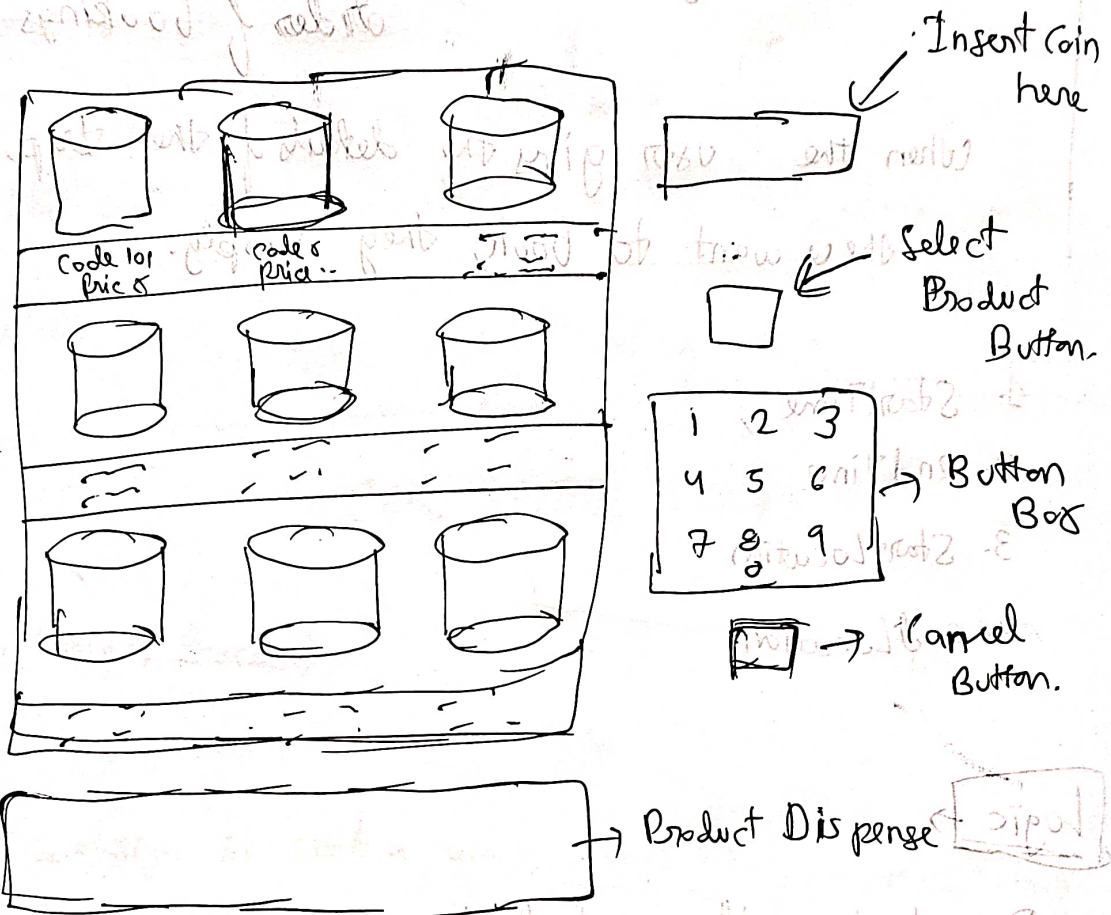 Insert Coin
here
Code 101
Price
Code &
Price..
Select
Product
Button.
1 2 3
4 5 6
7 8 9
0
Button
Box
Cancel
Button.
Product Dispense